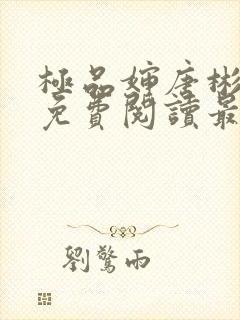 極品婶唐彬
免費閱讀最
劉驚雨